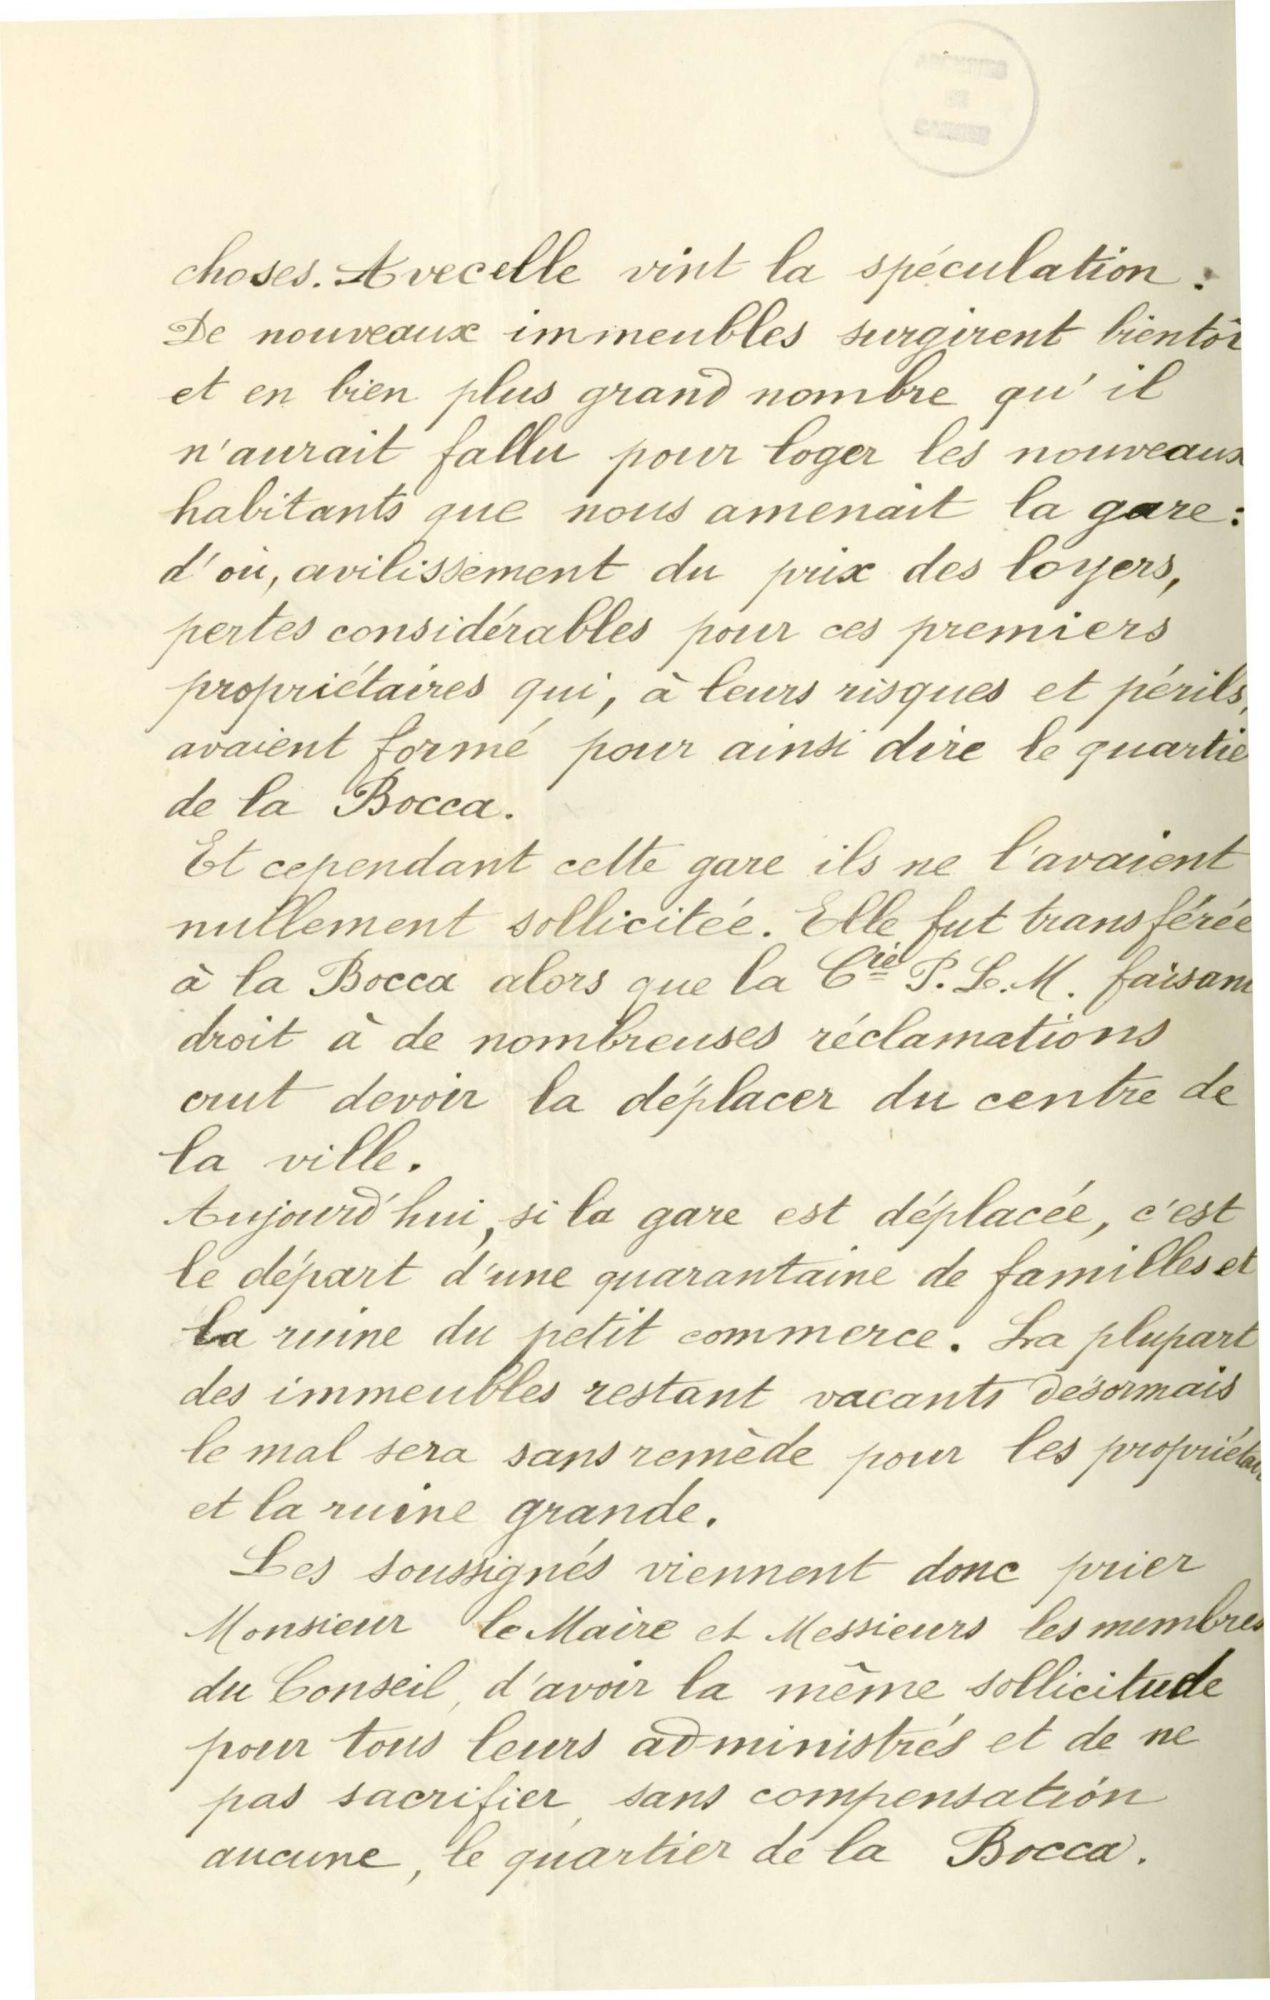 choses. Avec elle vint la spéculation :
De nouveaux immeubles surgirent bientôt
et en bien plus grand nombre qu'il
n'aurait fallu pour loger les nouveaux
habitants que nous amenait la gare :
d'où, avilissement du prix des loyers,
pertes considérables pour ces premiers
propriétaires qui, à leurs risques et périls,
avaient formé pour ainsi dire le quartie
de la Bocca.
Et cependant cette gare ils ne l'avaient
nullement sollicitée. Elle fut transférée
à la Bocca alors que la Cie P. L. M. faisant
droit à de nombreuses réclamations
crut devoir la déplacer du centre de
la ville.
Aujourd'hui, si la gare est déplacée, c'est
le départ d'une quarantaine de familles et
la ruine du petit commerce. La plupart
des immeubles restant vacants désormais
le mal sera sans remède pour les propriétai
et la ruine grande.
Les soussignés viennent donc prier
Monsieur le Maire et Messieurs les membres
du Conseil, d'avoir la même sollicitude
pour tous leurs administrés et de ne
pas sacrifier, sans compensation
aucune, le quartier de la Bocca.